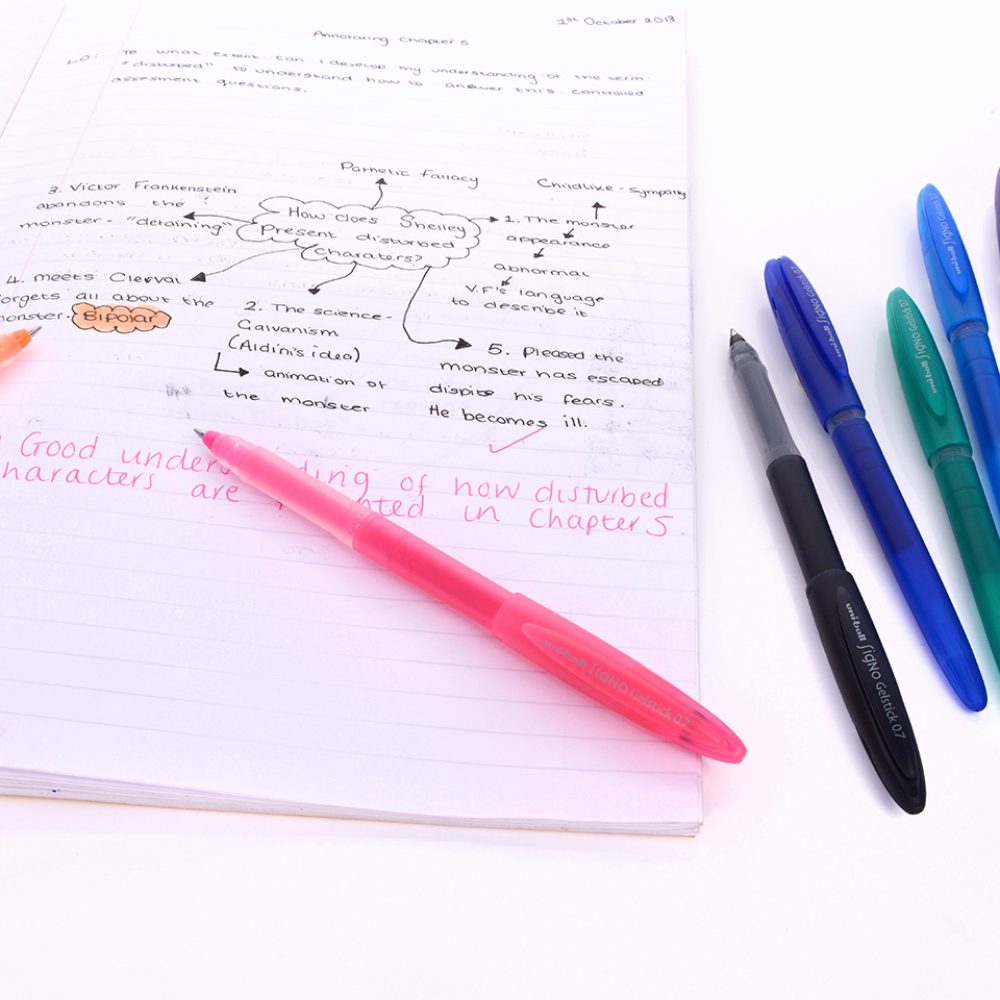 1st October 2013
Annotating Chapter 5
LO: To what extent can I develop my understanding of the term
"disturbed" to understand how to answer this controlled
assesment questions.
Pathetic fallacy
Childlike - sympathy
3. Victor Frankenstein
abandons the
monster - "detaining"
How does Shelley
Present disturbed
Charaters?
1. The monster
appearance
abnormal
V.F's language
to describe it
4. meets Clerval
forgets all about the
monster. Bifolar
2. The science -
Galvanism
(Aldini's idea)
animation of
the monster
5. Pleased the
monster has escaped
dispite his fears.
He becomes ill.
Good under ding of how disturbed
haracters are nted in Chapter 5.
uni-ball SigNO Gelstick 0.7
uni-ball SigNO Gelstick 0.7
uni-ball SigNO Gelstick 0.7
uni-ball SigNO Gelstick 0.7
uni-ball SigNO Gelstick 0.7